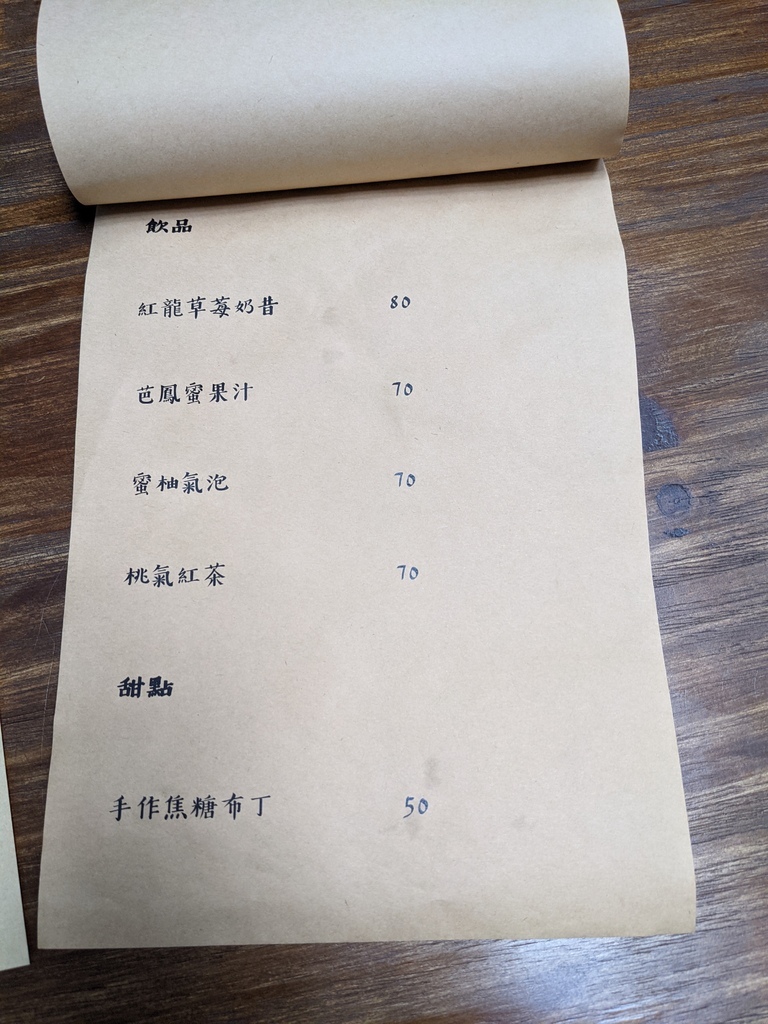 飲品
紅龍草莓奶昔 80
芭鳳蜜果汁 70
蜜柚氣泡 70
桃氣紅茶 70
甜點
手作焦糖布丁 50